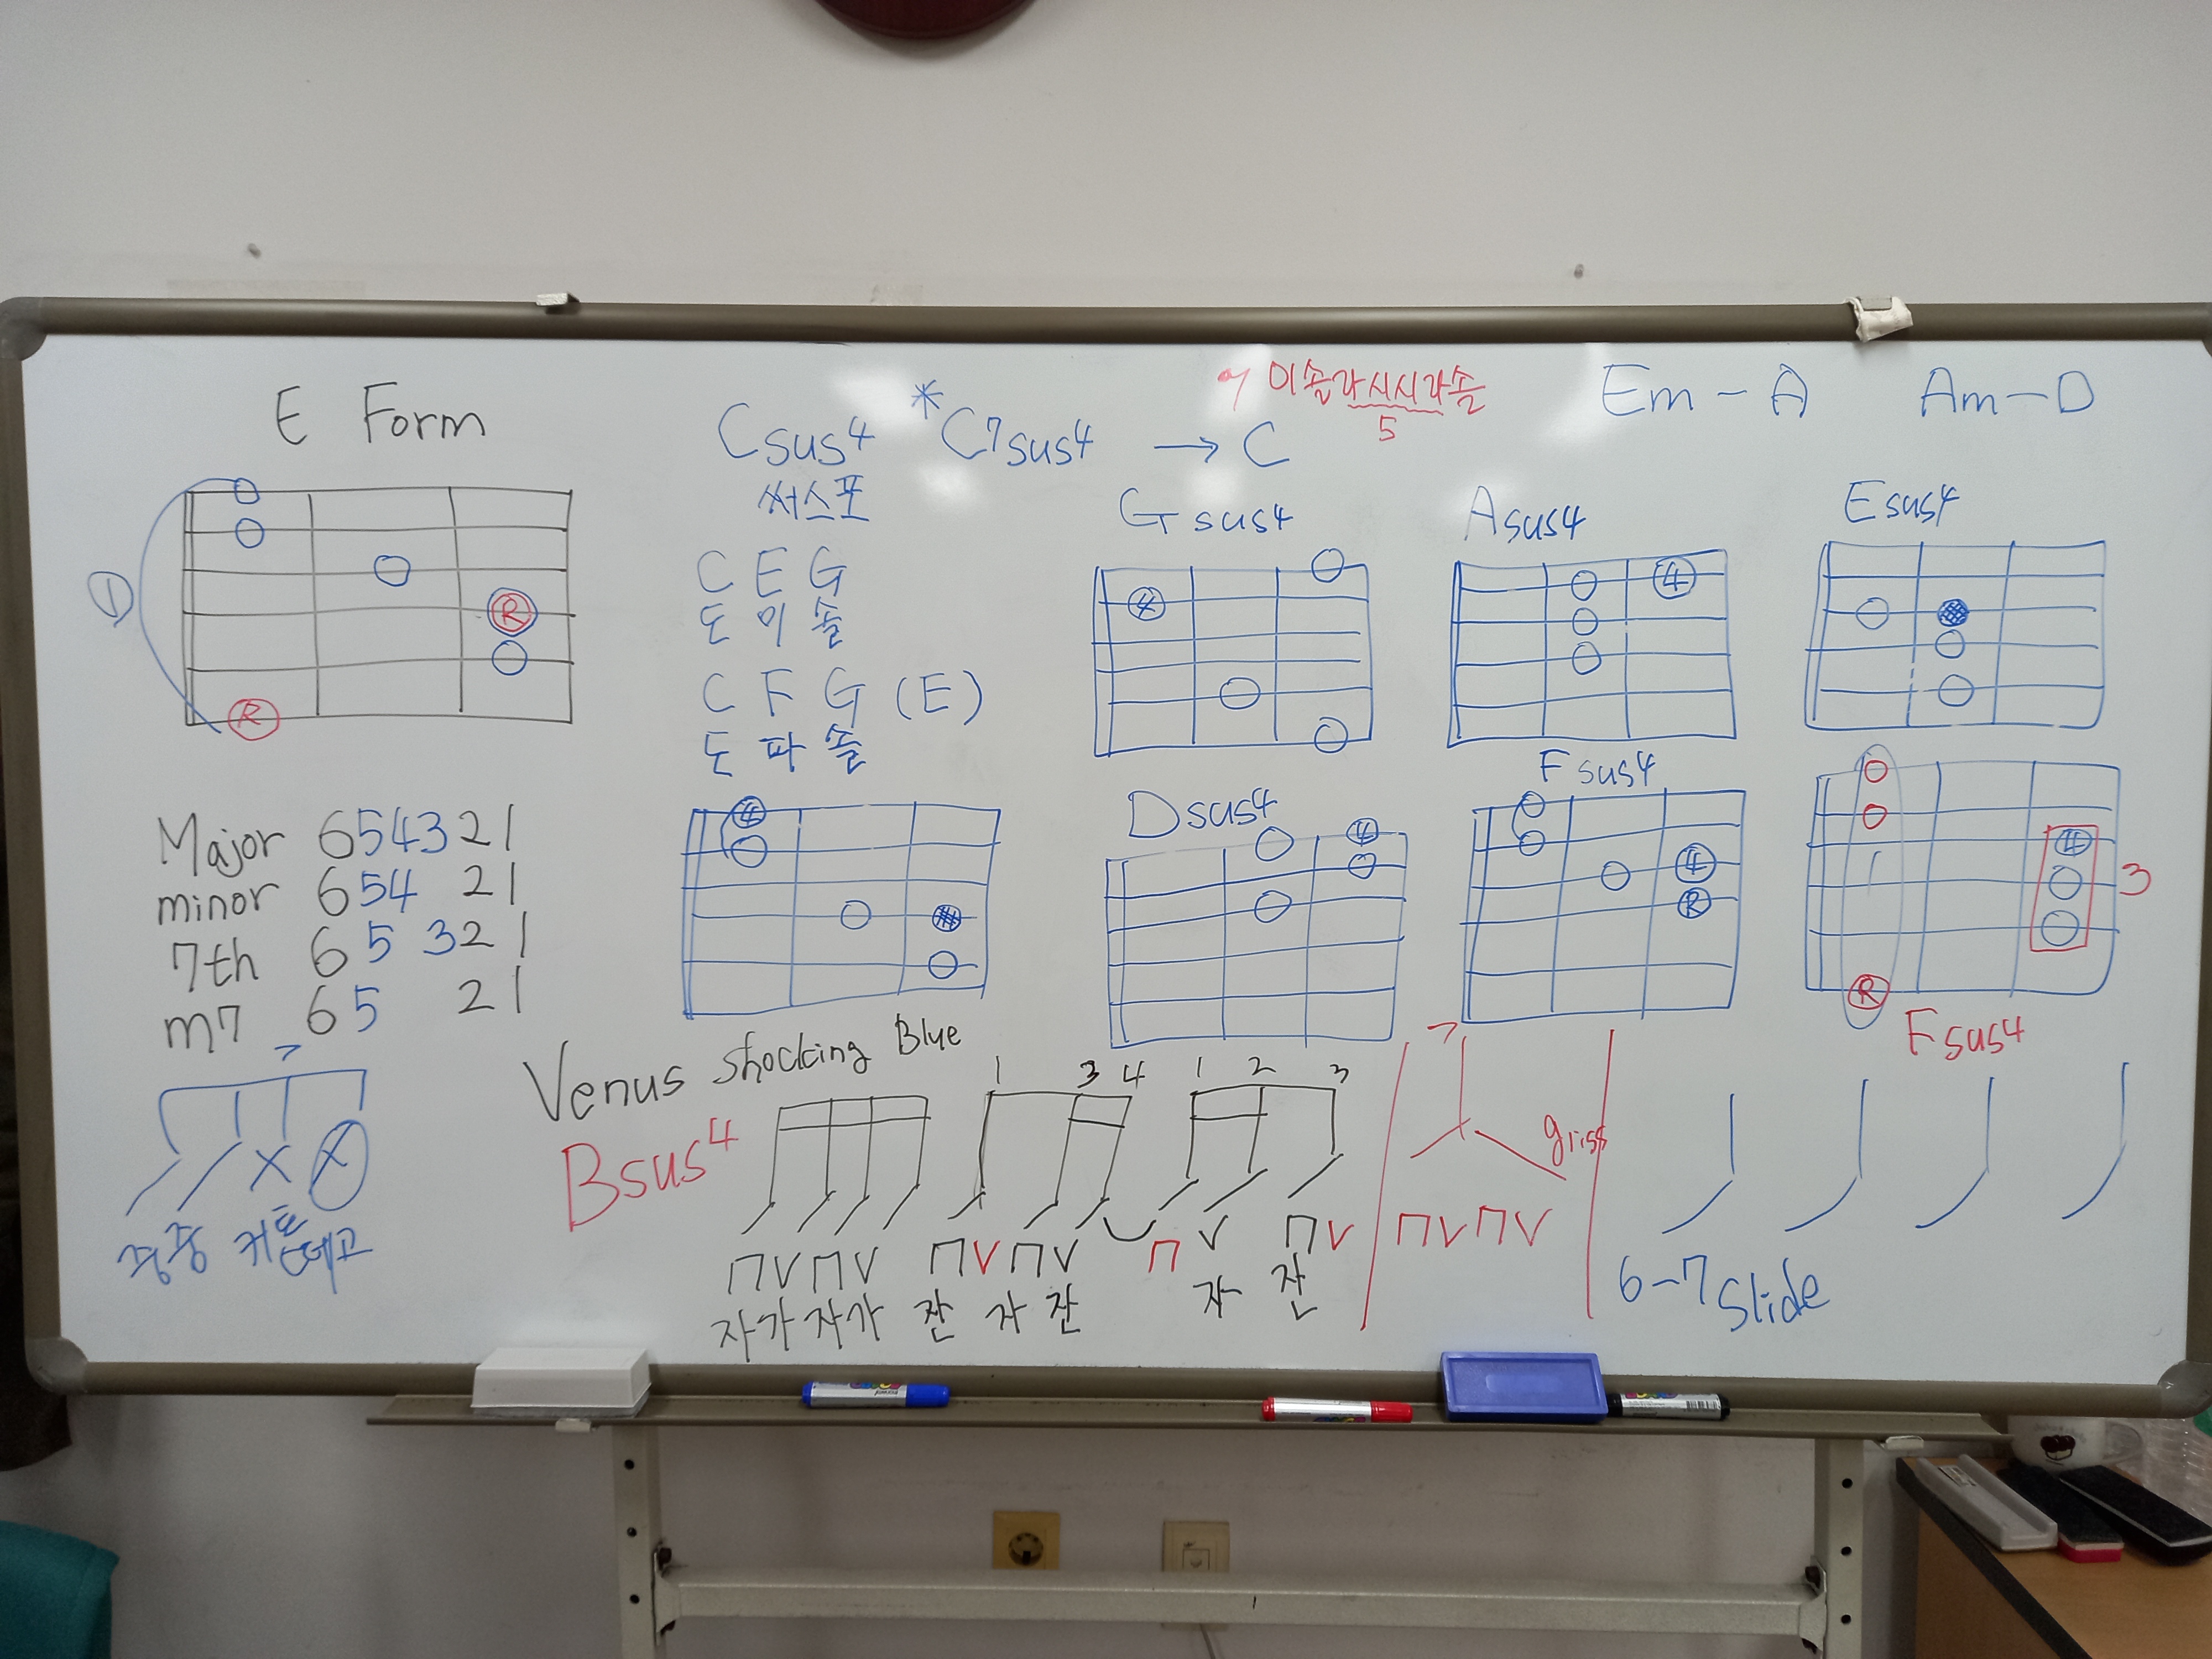 E Form
Csus4 *C7sus4 → C
써스포
이솔라시시라솔
5
Em - A
Am - D
1
R
R
C E G
도 미 솔
C F G (E)
도 파 솔
4
Gsus4
4
Asus4
4
Esus4
Dsus4
4
Fsus4
4
R
4
3
R
Fsus4
Major 654321
minor 654 21
7th 65 321
m7 65 21
쿵쿵 커트
Venus Shocking Blue
Bsus4
1 3 4 1 2 3
자가자가 잔 자 잔 자 잔
gliss
6-7 Slide